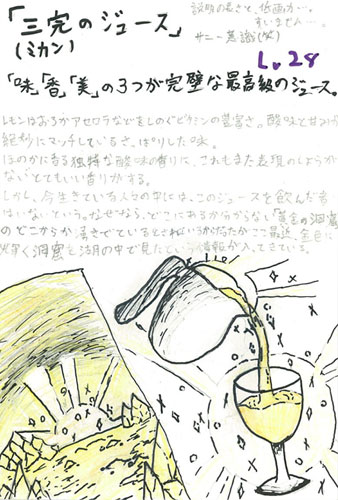 「三完のジュース」
(ミカン)
説明の長さと、低画力…。
すいません…。
サニー意識(笑)
Lv.28
「味」「香」「美」の3つが完璧な最高級のジュース。
レモンはおろかアセロラなどをしのぐビタミンの豊富さ。酸味と甘みが
絶妙にマッチしているさっぱりした味。
ほのかに香る独特な酸味の香りに、これもまた表現のしようが
ないとてもいい香りがする。
しかし、今生きている人の中には、このジュースを飲んだ者
はいないという。なぜなら、どこにあるかわからない「黄金の洞窟」
のどこからか湧きでているといわれているからだったがここ最近、金色に
輝く洞窟を湖の中で見たという情報が入ってきている。